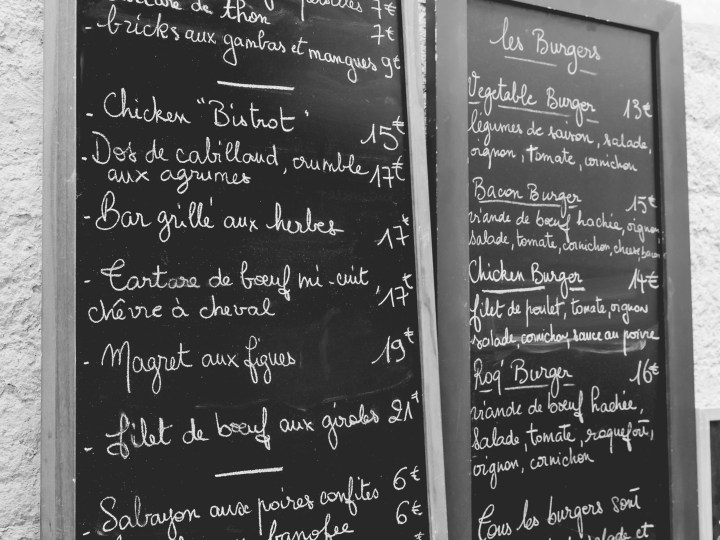 de thon 7€
- bricks aux gambas et mangues 7€ 9€
- Chicken "Bistrot" 15€
- Dos de cabillaud, crumble
aux agrumes 17€
- Bar grillé aux herbes 17€
- Tartare de bœuf mi-cuit,
chèvre à cheval 17€
- Magret aux figues 19€
- filet de bœuf aux giroles 21€
- Sabayon aux poires confites 6€
banofee 6€
les Burgers
Vegetable Burger 13€
légumes de saison, salade,
oignon, tomate, cornichon
Bacon Burger 15€
viande de bœuf hachée, oignon,
salade, tomate, cornichon, cheese bacon
Chicken Burger 14€
filet de poulet, tomate, oignon
salade, cornichon, sauce au poivre
Roq Burger 16€
viande de bœuf hachée,
salade, tomate, roquefort,
oignon, cornichon
Tous les burgers sont
salade et